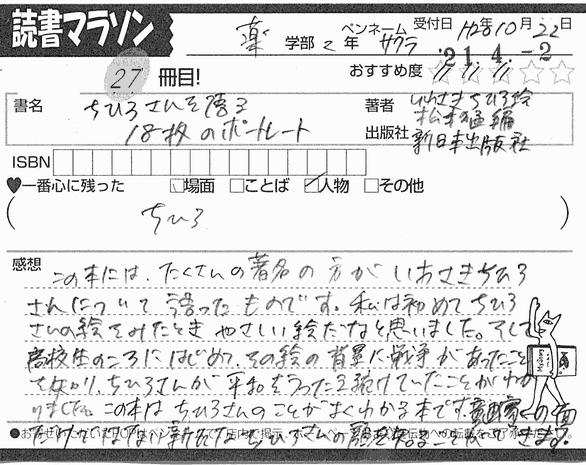 読書マラソン
薬 学部 2 年 ペンネーム サクラ 受付日 H28年10月22日
'21.4.-2
27 冊目!
おすすめ度 ☆☆☆☆☆
書名 ちひろさんを語る
18枚のポートレート
著者 いわさきちひろ絵
松本猛編
出版社 新日本出版社
ISBN
♥一番心に残った □場面 □ことば □人物 □その他
( ちひろ )
感想
この本には、たくさんの著名の方がいわさきちひろ
さんについて語ったものです。私は初めてちひろ
さんの絵をみたときやさしい絵だなと思いました。そして
高校生のころにはじめて、その絵の背景に戦争があったこと
を知り、ちひろさんが平和をうったえ続けていたことがわか
りました。この本はちひろさんのことがよくわかる本です。
だけではない新たなちひろさんの